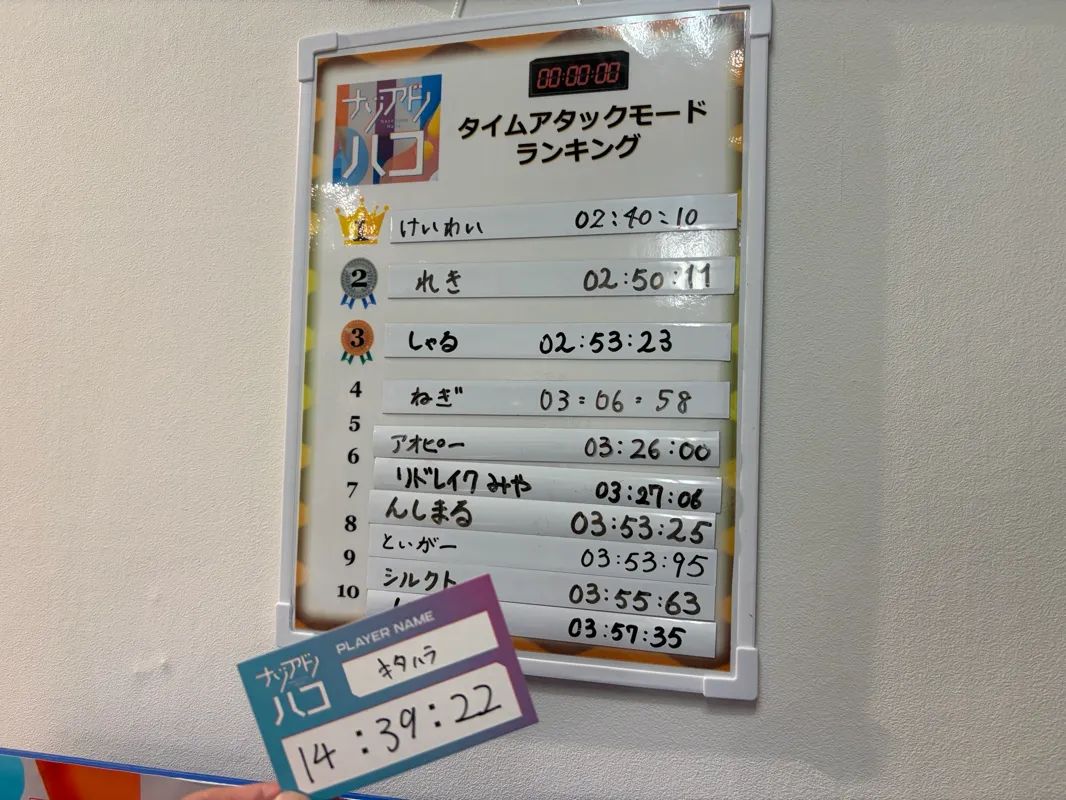 ナゾアドノ
ハコ
00:00:00
タイムアタックモード
ランキング
1 けいわい 02:40:10
2 れき 02:50:11
3 しゃる 02:53:23
4 ねぎ 03:06:58
5 アオピー 03:26:00
6 リドレイク みや 03:27:06
7 んしまる 03:53:25
8 とぃがー 03:53:95
9 シルクト 03:55:63
10 03:57:35
PLAYER NAME
ナゾアドノ
ハコ
キタハラ
14:39:22